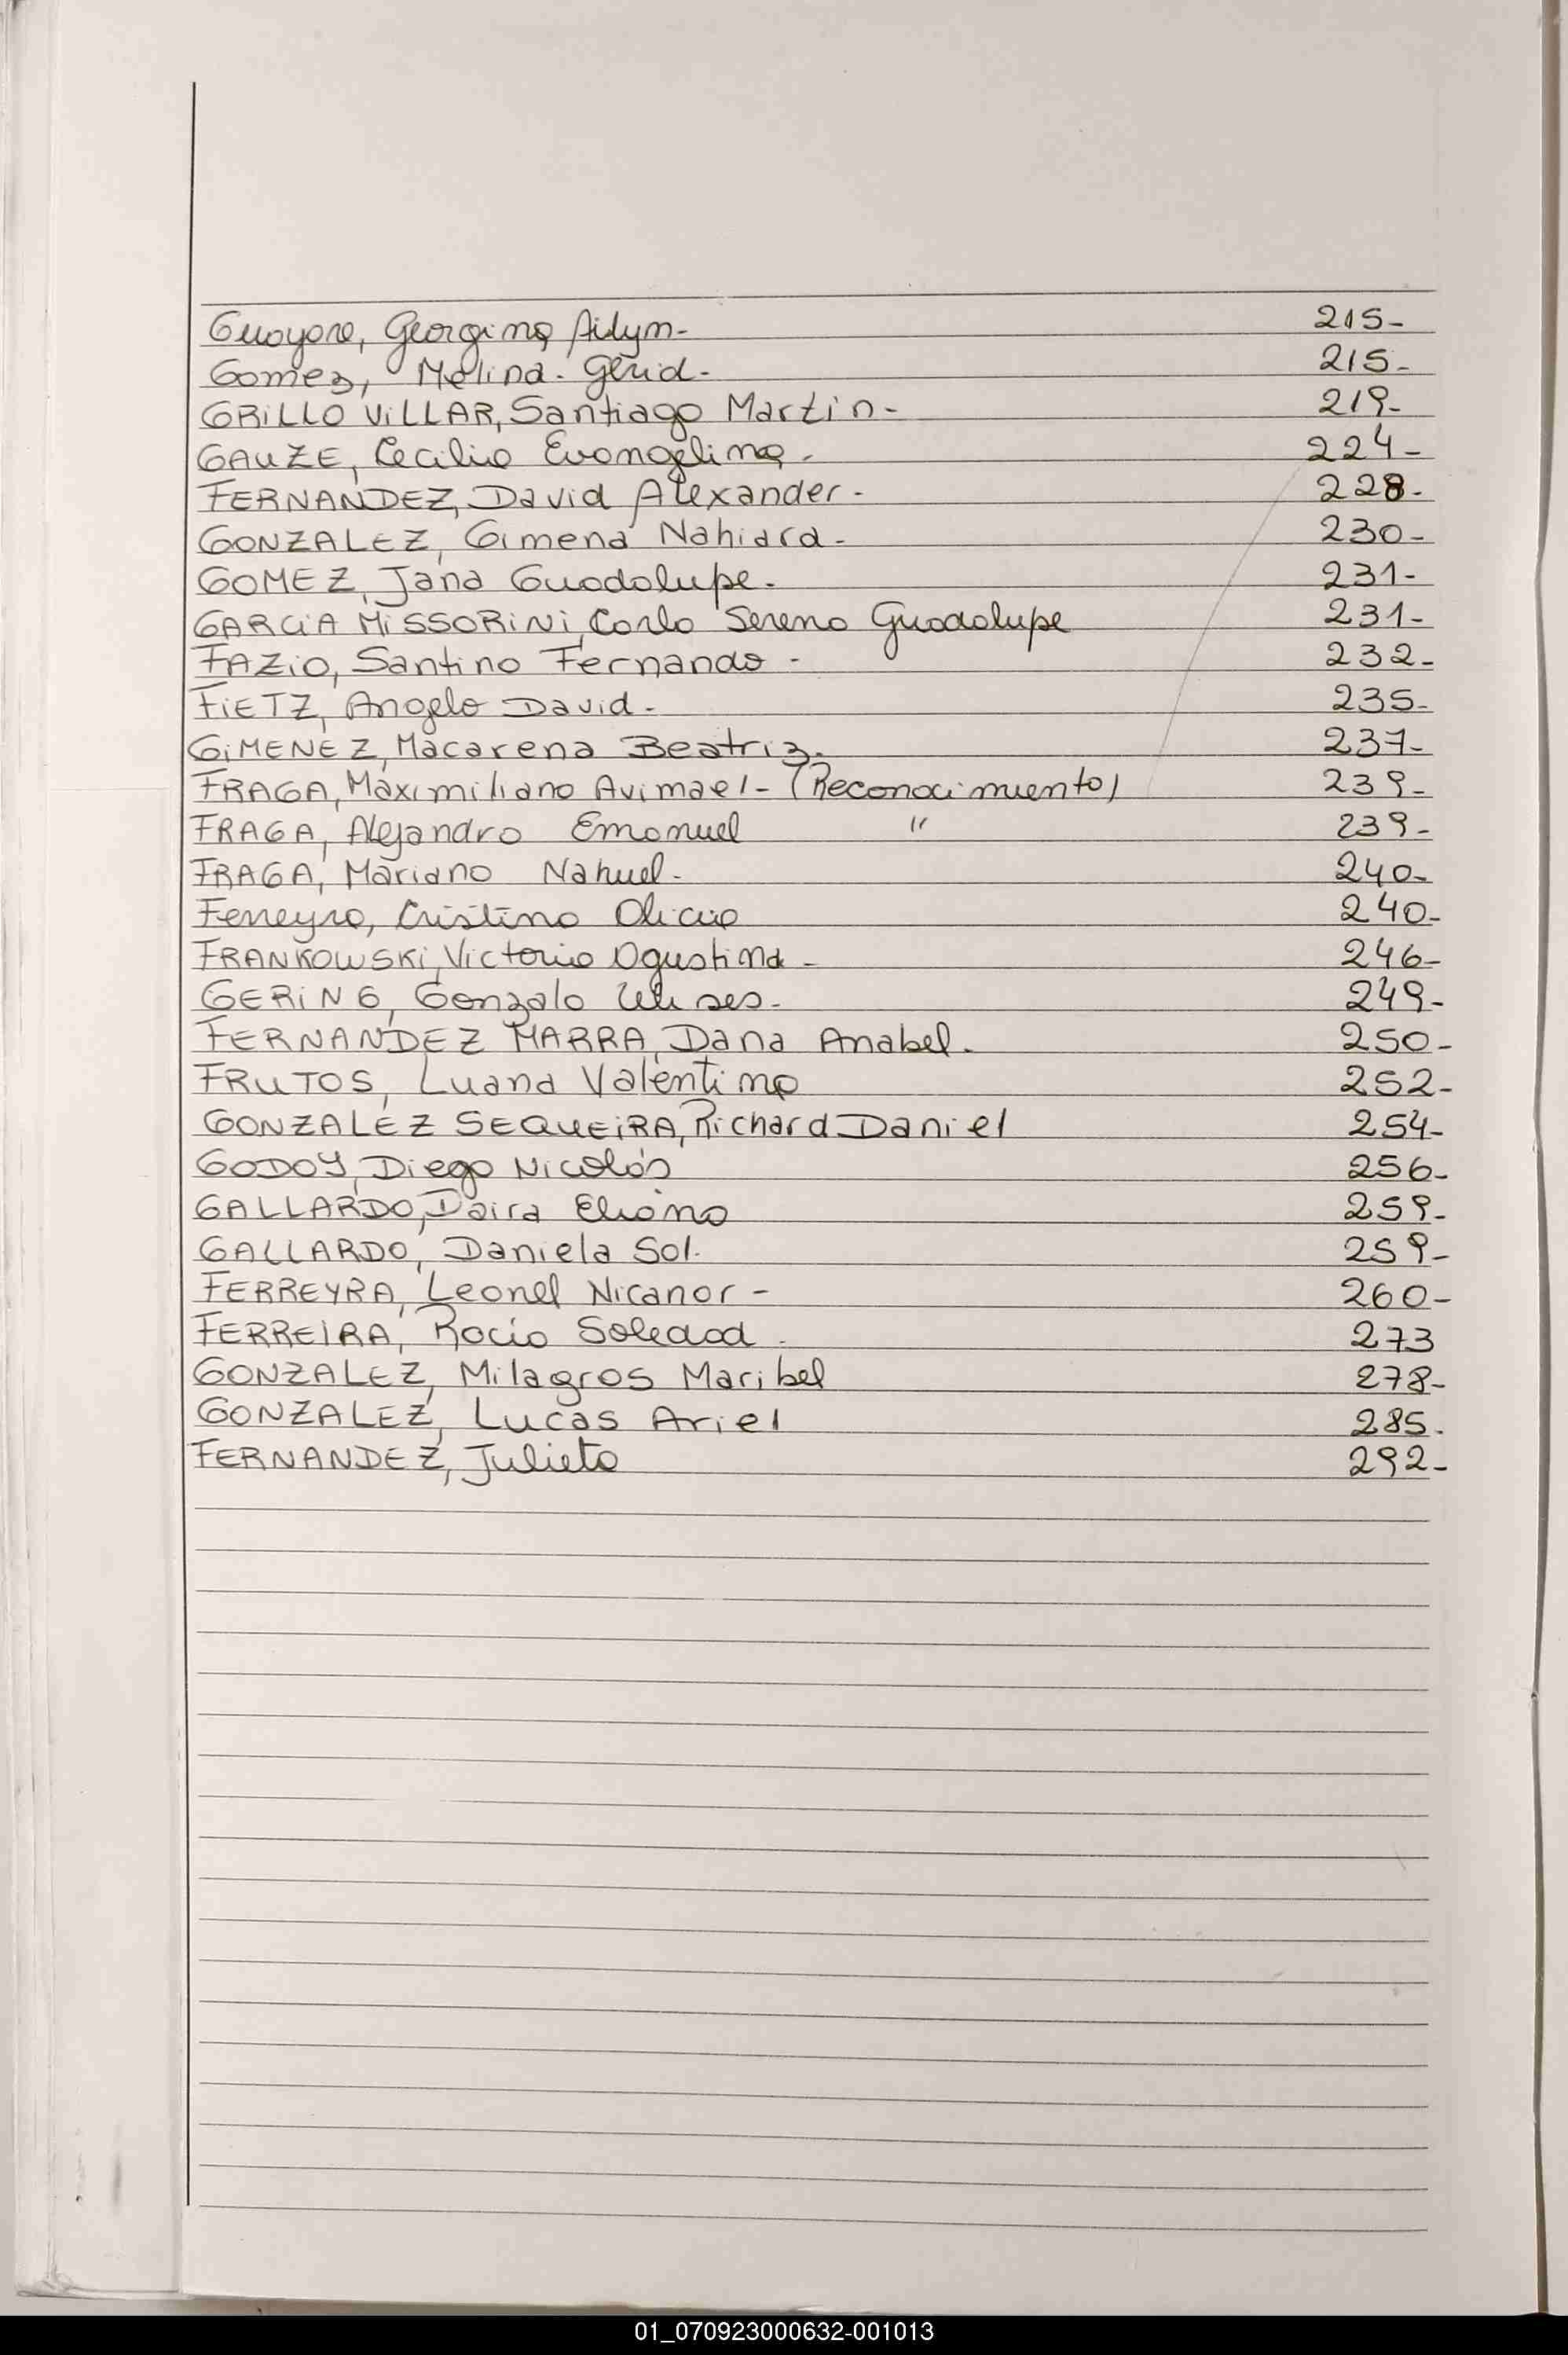 Guayare, Georgina Ailym- 215-
Gomez, Melina. Gerid- 215-
GRILLO ViLLAR, Santiago Martin- 219-
GAUZE, Cecilia Evangelina. 224-
FERNANDEZ, David Alexander- 228-
GONZALEZ, Gimena Nahiara- 230-
GOMEZ, Jana Guadalupe- 231-
GARCiA MiSSORiNi, Carlo Sereno Guadalupe 231-
FAZiO, Santino Fernando - 232-
FiETZ, Angelo David- 235-
GiMENEZ, Macarena Beatriz- 237-
FRAGA, Maximiliano Avimael- (Reconocimiento) 239-
FRAGA, Alejandro Emanuel " 239-
FRAGA, Mariano Nahuel- 240-
Ferreyra, Cristina 240-
FRANKOWSKi, Victoria Agustina - 246-
GERiNG, Gonzalo Ulises- 249-
FERNANDEZ MARRA, Dana Anabel. 250-
FRUTOS, Luana Valentina 252-
GONZALEZ SEQUEiRA, Richard Daniel 254-
GODOY, Diego Nicolás 256-
GALLARDO, Daira Eliana 259-
GALLARDO, Daniela Sol. 259-
FERREYRA, Leonel Nicanor- 260-
FERREIRA, Rocio Soledad - 273
GONZALEZ, Milagros Maribel 278-
GONZALEZ, Lucas Ariel 285.
FERNANDEZ, Julieta 292-
01_070923000632-001013